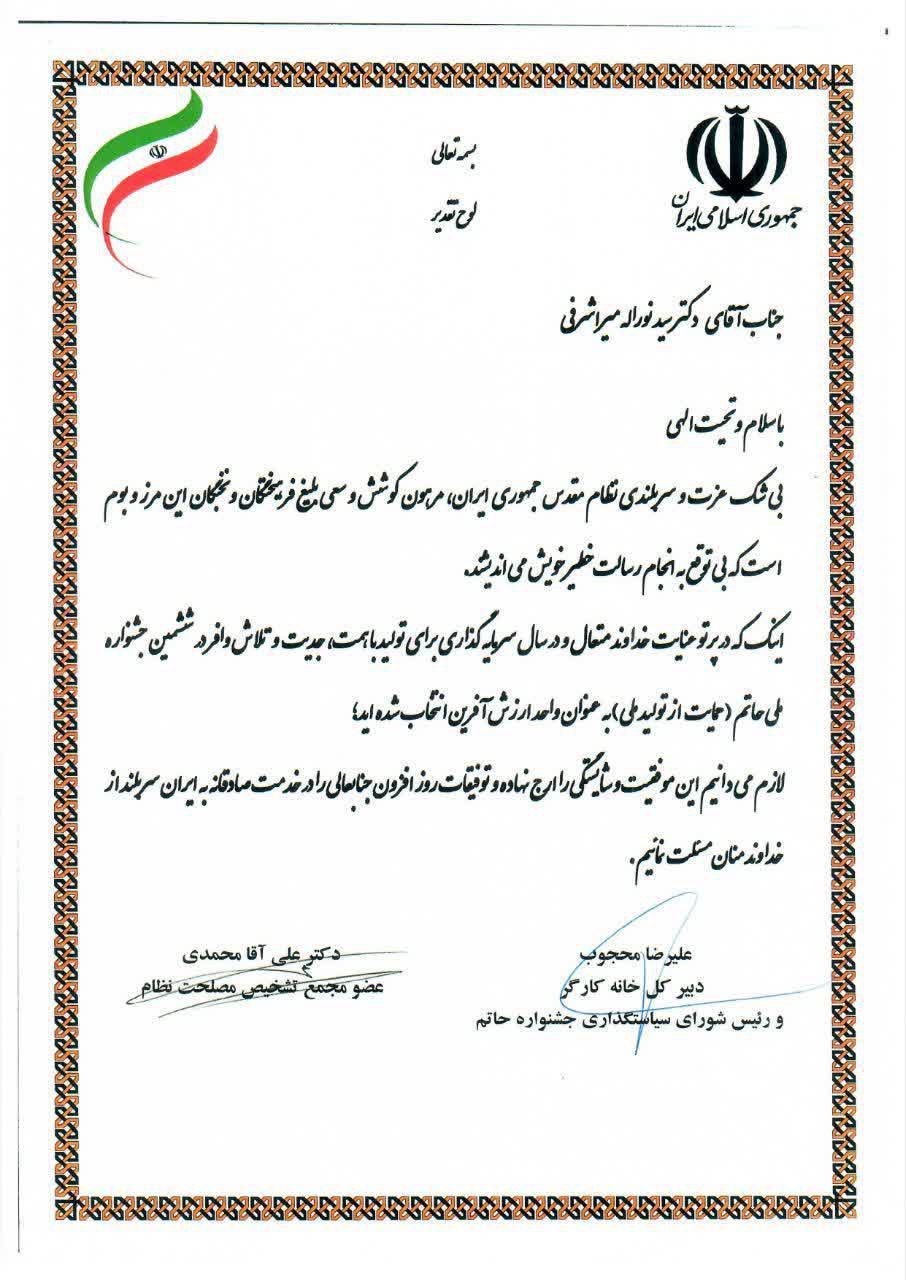 جمهوری اسلامی ایران
بسمه تعالی
لوح تقدیر
جناب آقای دکتر سید نوراله میراشرفی
باسلام و تحیت الهی
بی شک عزت و سربلندی نظام مقدس جمهوری ایران، مرهون کوشش و سعی بلیغ فرهیختگان و نخبگان این مرز و بوم
است که بی توقع به انجام رسالت خطیر خویش می اندیشند.
اینک که در پرتو عنایت خداوند متعال و در سال سرمایه گذاری برای تولید باهمت، جدیت و تلاش وافر در ششمین جشنواره
ملی حاتم (حمایت از تولید ملی) به عنوان واحد ارزش آفرین انتخاب شده اید؛
لازم می دانیم این موفقیت و شایستگی را ارج نهاده و توفیقات روز افزون جنابعالی را در خدمت صادقانه به ایران سربلند از
خداوند منان مسئلت نمائیم.
علیرضا محجوب
دبیر کل خانه کارگر
و رئیس شورای سیاستگذاری جشنواره حاتم
دکتر علی آقا محمدی
عضو مجمع تشخیص مصلحت نظام